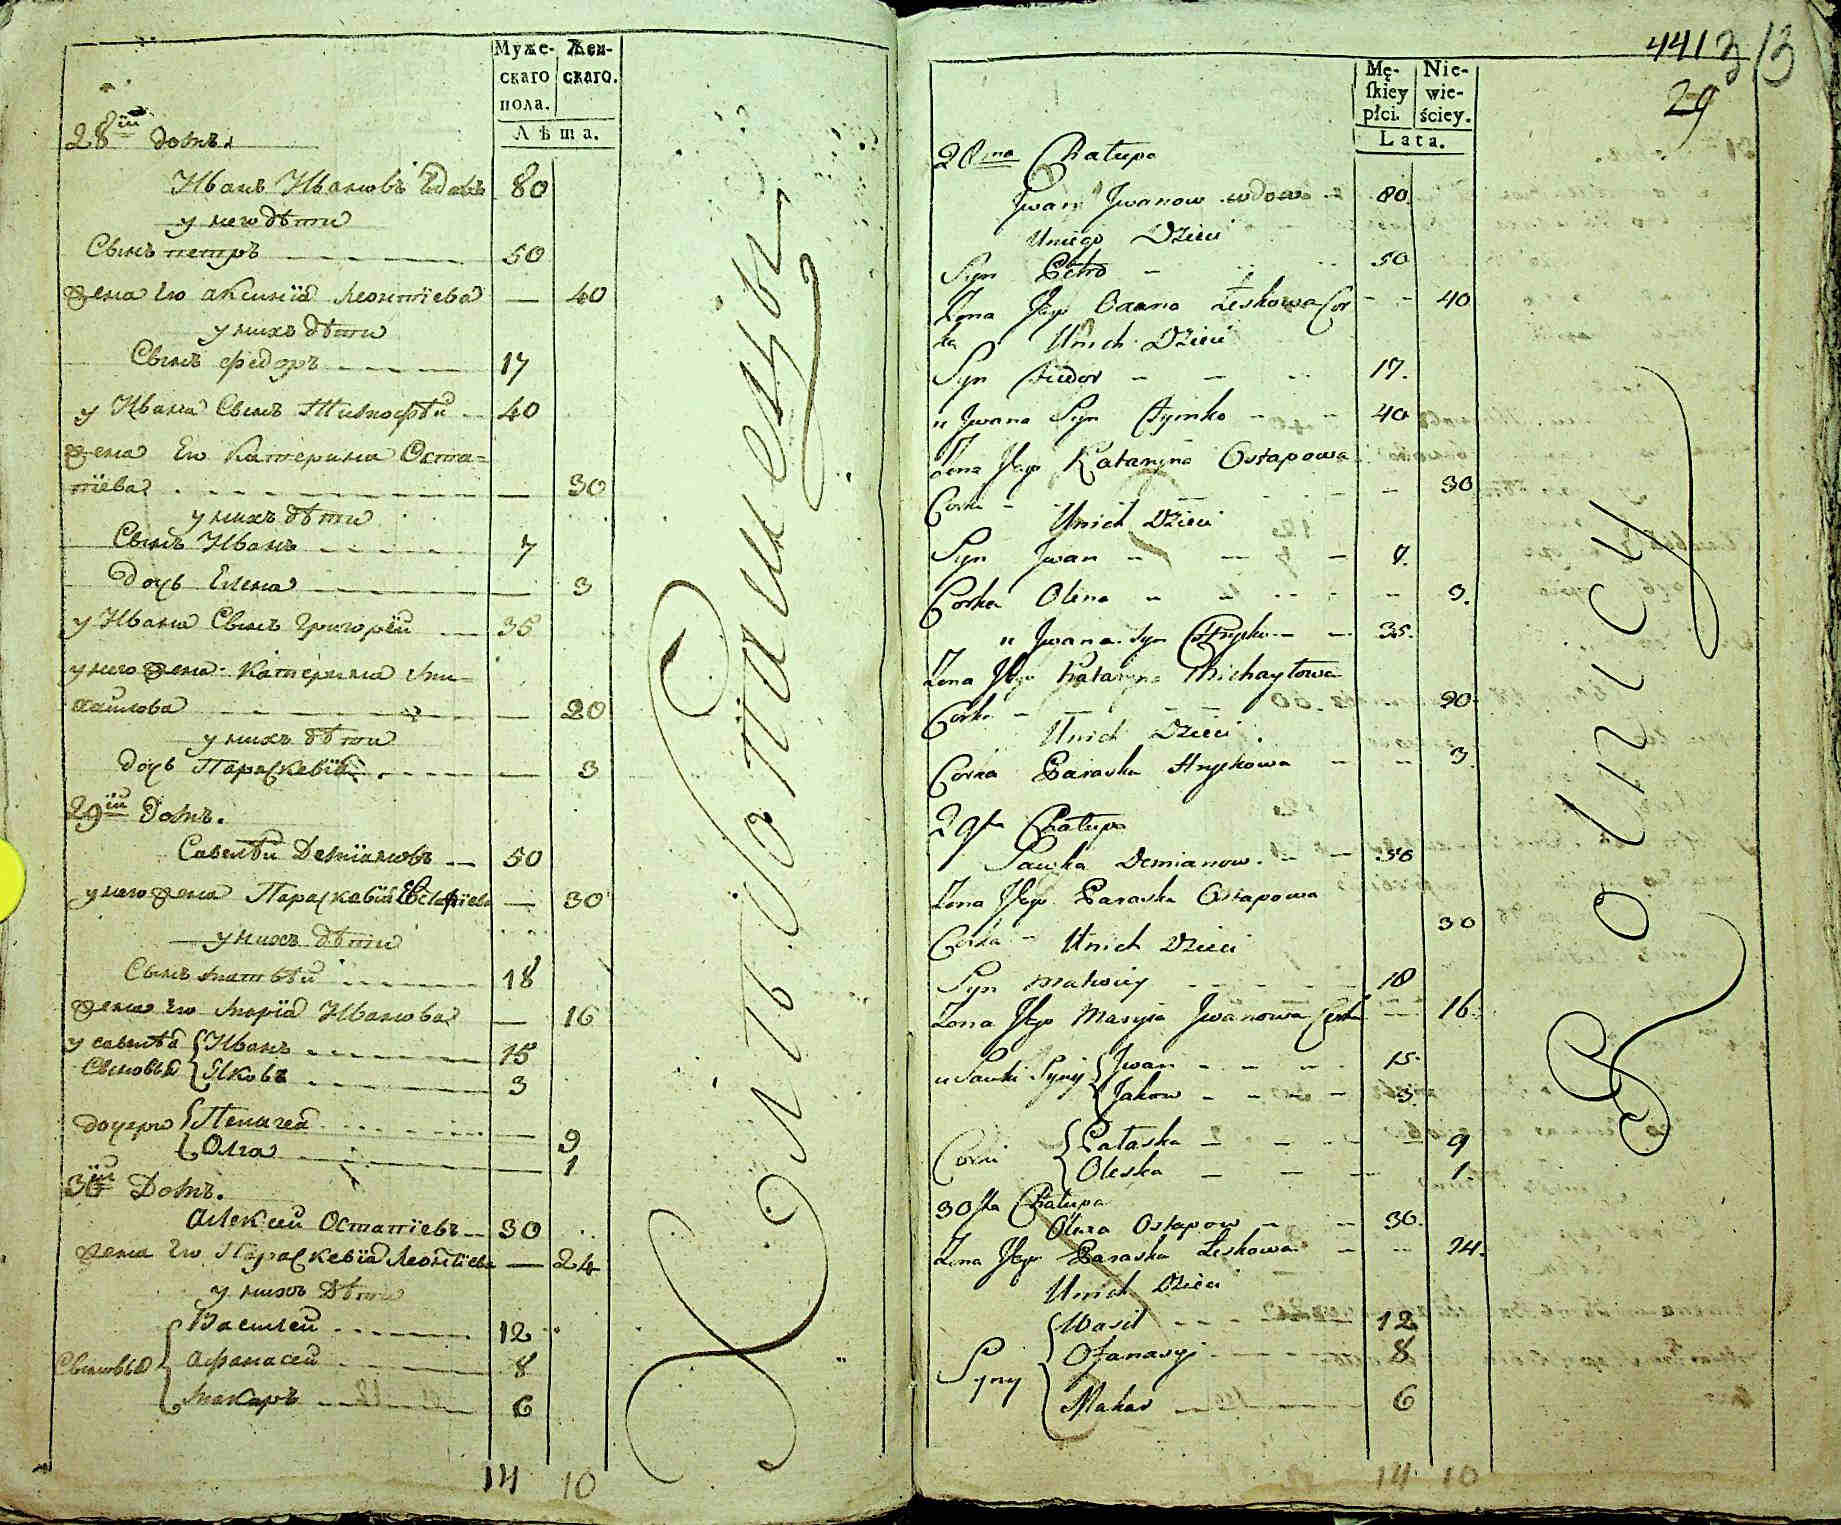 Муже- Жен-
скаго скаго.
пола.
Лѣта.
28ій домъ.
Иванъ Ивановъ вдовъ 80
у него дѣти
Сынъ петръ 50
жена Его аксинїа Леонтїева 40
у нихъ дѣти
Сынъ Федоръ 17
у Ивана Сынъ Тимофѣй 40
жена Его Катерина Оста=
пїева 30
у нихъ дѣти
Сынъ Иванъ 7
дочь Елена 3
у Ивана Сынъ Григорей 35
у него жена Катерина Ми-
хаилова 20
у нихъ дѣти
дочь Параскевїа 3
29ій Домъ.
Савелѣй Демїановъ 50
у него жена Параскевїа 30
у нихъ дѣти
Сынъ Матвѣй 18
жена Его Марїа Иванова 16
у савелѣа Иванъ 15
Сыновьа Яковъ 3
дочери Пелагеа 9
Олга 1
30ій Домъ.
Алексей Остапїевъ 30
жена Его Параскевїа Леонтїева 24
у нихъ Дѣти
Василей 12
Сыновьа Афанасей 8
Макаръ 6
14 10
земледелецы
441 3 13
29
Mę- Nie-
skiey wie-
płci. ściey.
Lata.
28ma Chałupa
Jwan Jwanow wdow 80
Uniego Dzieci
Syn Petro 50
Zona Jego Leskowa Cor 40
ka Unich Dzieci
Syn Chwedor 17.
u Jwana Syn Tymko 40
Zona Jego Kataryna Ostapowa
Corka 30
Unich Dzieci
Syn Jwan 7.
Corka Olena 3.
u Jwana Syn Hryćko 35.
Zona Jego Kataryna Michayłowa
Corka 20
Unich Dzieci
Corka Paraska Hryckowa 3.
29ta Chałupa
Sawka Demianow 50
Zona Jego Paraska Ostapowa
Corka 30
Unich Dzieci
Syn Matwiey 18
Zona Jego Marysia Jwanowa Corka 16.
u Sawki Syny Jwan 15.
Jakow 3.
Corki Pałaska 9
Oleska 1.
30ta Chałupa
Olexa Ostapow 30.
Zona Jego Paraska Leskowa 24.
Unich Dzieci
Wasil 12
Syny Ofanasyj 8
Makar 6
14 10
Rolnicy